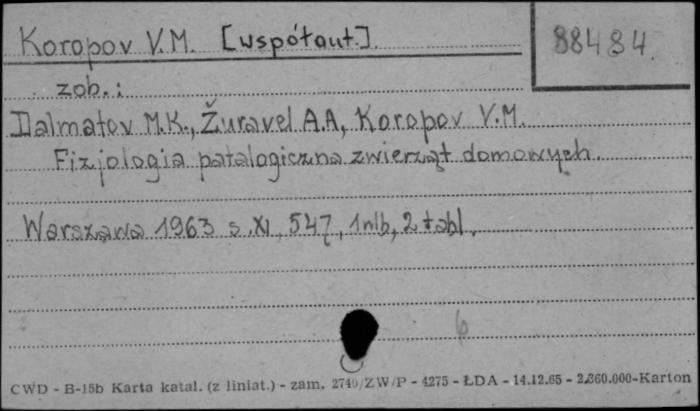 Koropov V.M. [współaut.].
88484
zob.:
Dalmatov M.K., Žuravel A.A, Koropov V.M.
Fizjologia patalogiczna zwierząt domowych.
Warszawa 1963 s. XI, 547, 1 nlb, 2 tabl.
6
CWD - B-15b Karta katal. (z liniat.) - zam. 2740/ZW/P - 4275 - ŁDA - 14.12.65 - 2.360.000-Karton